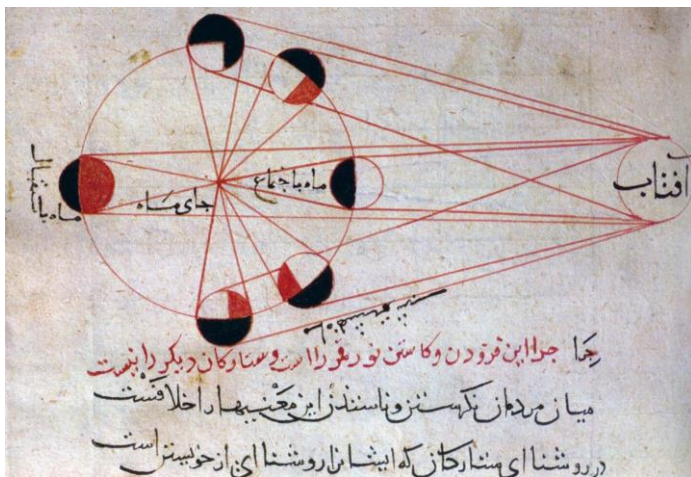 افتاب
ماه باجتماع
جای ماه
ماه باستقبال
جرا جرا این فزودن و کاستن نور قمر را است و ستارکان دیکر را نیست
میان مردمان نکرستن این معنیها را خلافست
در روشنا ای ستارکان که ایشانرا روشنا ای از خویشتن است